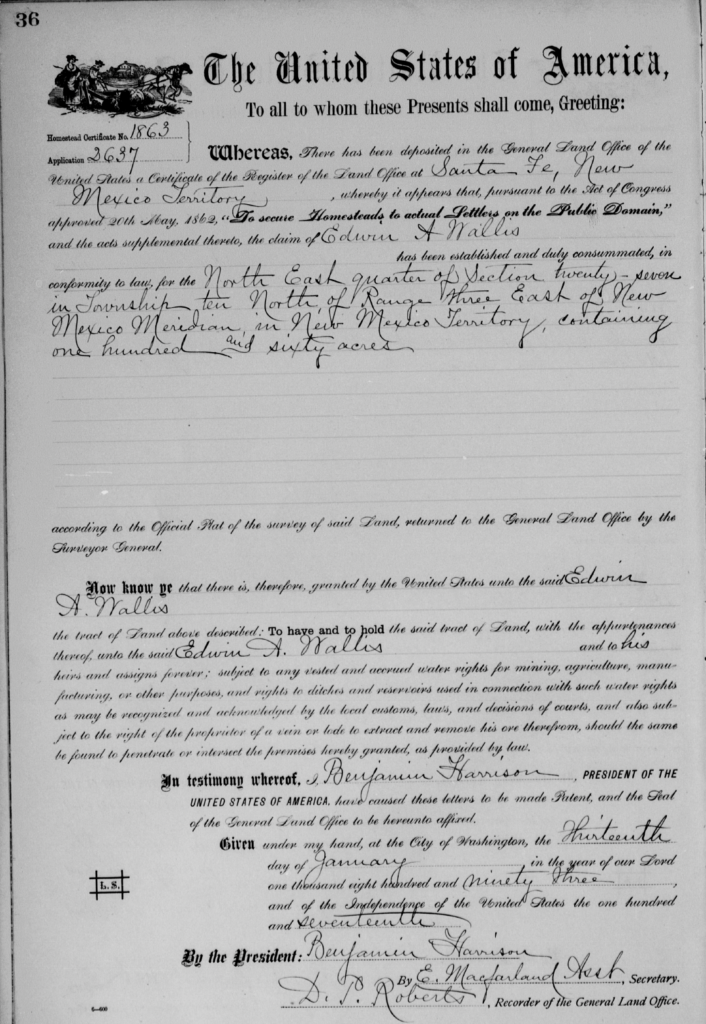 36
The United States of America,
To all to whom these Presents shall come, Greeting:
Homestead Certificate No. 1863
Application 2637
Whereas, There has been deposited in the General Land Office of the
United States a Certificate of the Register of the Land Office at Santa Fe, New
Mexico Territory, whereby it appears that, pursuant to the Act of Congress
approved 20th May, 1862, "To secure Homesteads to actual Settlers on the Public Domain,"
and the acts supplemental thereto, the claim of Edwin A Wallis
has been established and duly consummated, in
conformity to law, for the North East quarter of Section twenty-seven
in Township ten North, of Range three East of New
Mexico Meridian, in New Mexico Territory, containing
one hundred and sixty acres
according to the Official Plat of the survey of said Land, returned to the General Land Office by the
Surveyor General.
Now know ye that there is, therefore, granted by the United States unto the said Edwin
A. Wallis
the tract of Land above described: To have and to hold the said tract of Land, with the appurtenances
thereof, unto the said Edwin A. Wallis and to his
heirs and assigns forever; subject to any vested and accrued water rights for mining, agriculture, manu-
facturing, or other purposes, and rights to ditches and reservoirs used in connection with such water rights
as may be recognized and acknowledged by the local customs, laws, and decisions of courts, and also sub-
ject to the right of the proprietor of a vein or lode to extract and remove his ore therefrom, should the same
be found to penetrate or intersect the premises hereby granted, as provided by law.
In testimony whereof, I, Benjamin Harrison, PRESIDENT OF THE
UNITED STATES OF AMERICA, have caused these letters to be made Patent, and the Seal
of the General Land Office to be hereunto affixed.
Given under my hand, at the City of Washington, the Thirteenth
day of January, in the year of our Lord
one thousand eight hundred and ninety three,
and of the Independence of the United States the one hundred
and seventeenth
L. S.
By the President: Benjamin Harrison
By E. Macfarland Asst, Secretary.
D. P. Roberts, Recorder of the General Land Office.
6—600